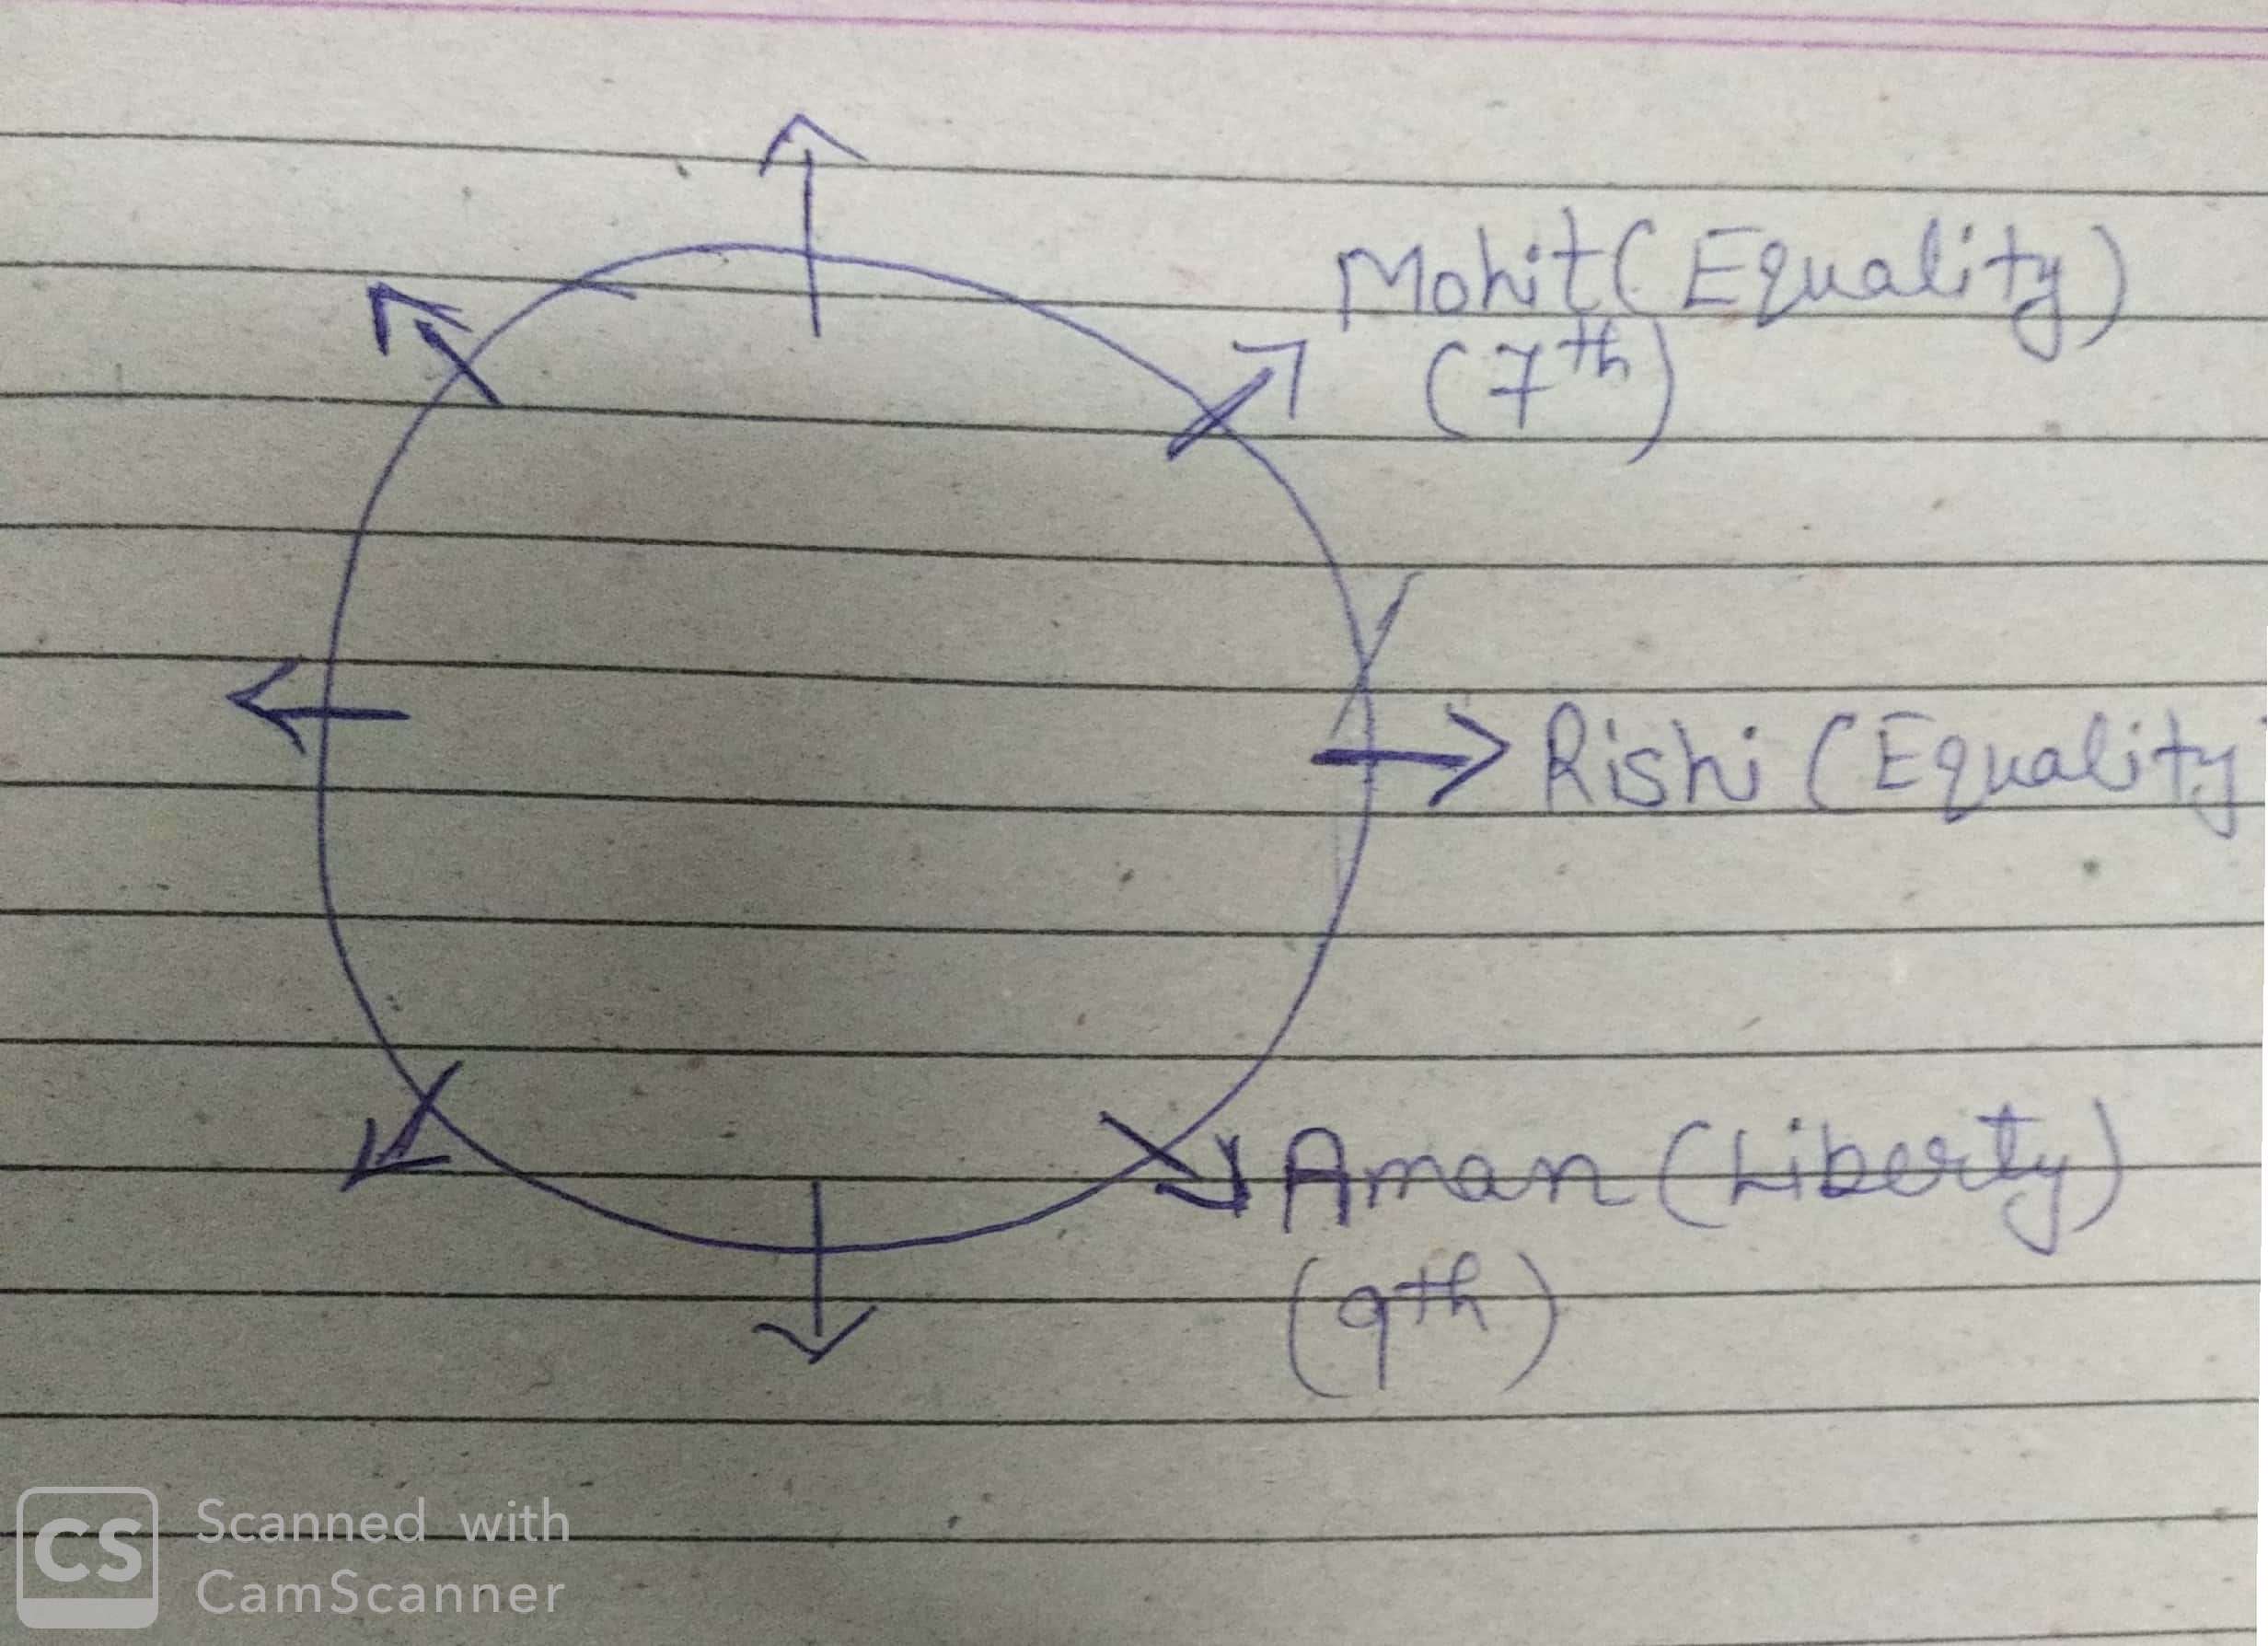 Mohit (Equality)
(7th)
Rishi (Equality
Aman (Liberty)
(9th)
CS Scanned with
CamScanner